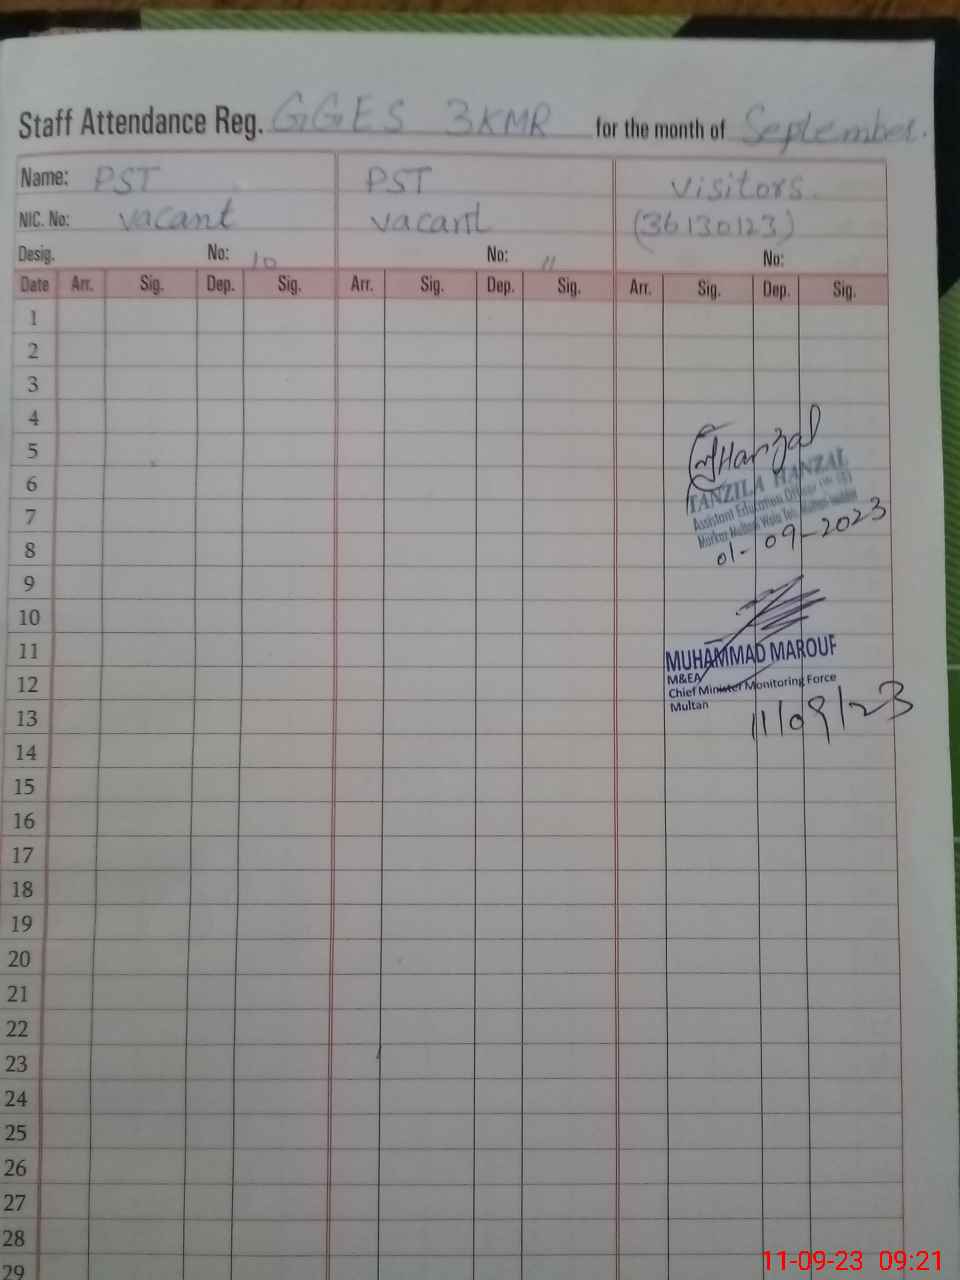 Staff Attendance Reg. GGES 3KMR for the month of September.
Name: PST PST Visitors.
NIC. No: vacant vacant (36130123)
Desig. No: 10 No: 11 No:
Date Arr. Sig. Dep. Sig. Arr. Sig. Dep. Sig. Arr. Sig. Dep. Sig.
1
2
3
4
5
6
7
8
9
10
11
12
13
14
15
16
17
18
19
20
21
22
23
24
25
26
27
28
29
Hanzal
TANZILA HANZAL
Assistant Education Officer
Markaz Multan
01-09-2023
MUHAMMAD MAROUF
M&EA
Chief Minister Monitoring Force
Multan
11/09/23
11-09-23 09:21